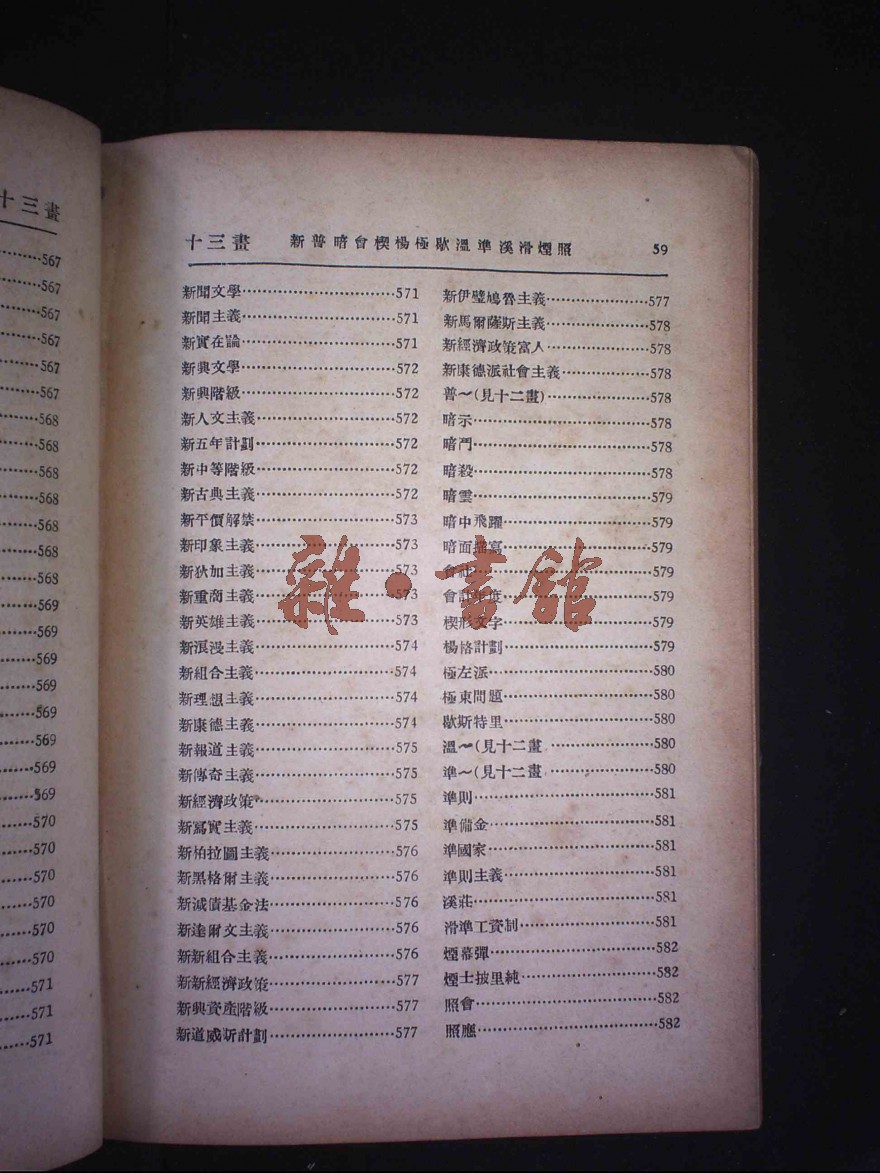 十三畫
567
567
567
567
567
567
568
568
568
568
568
568
568
569
569
569
569
569
569
569
570
570
570
570
570
570
571
571
571
十三畫 新普暗會楔楊極歇溫準溪滑煙照 59
新聞文學⋯⋯571
新聞主義⋯⋯571
新實在論⋯⋯571
新興文學⋯⋯572
新興階級⋯⋯572
新人文主義⋯⋯572
新五年計劃⋯⋯572
新中等階級⋯⋯572
新古典主義⋯⋯572
新平價解禁⋯⋯573
新印象主義⋯⋯573
新狄加主義⋯⋯573
新重商主義⋯⋯573
新英雄主義⋯⋯573
新浪漫主義⋯⋯574
新組合主義⋯⋯574
新理想主義⋯⋯574
新康德主義⋯⋯574
新報道主義⋯⋯575
新傳奇主義⋯⋯575
新經濟政策⋯⋯575
新寫實主義⋯⋯575
新柏拉圖主義⋯⋯576
新黑格爾主義⋯⋯576
新減債基金法⋯⋯576
新達爾文主義⋯⋯576
新新組合主義⋯⋯576
新新經濟政策⋯⋯577
新興資產階級⋯⋯577
新道威斯計劃⋯⋯577
新伊璧鳩魯主義⋯⋯577
新馬爾薩斯主義⋯⋯578
新經濟政策富人⋯⋯578
新康德派社會主義⋯⋯578
普～(見十二畫)⋯⋯578
暗示⋯⋯578
暗鬥⋯⋯578
暗殺⋯⋯578
暗雲⋯⋯579
暗中飛躍⋯⋯579
暗面描寫⋯⋯579
會社⋯⋯579
會計年度⋯⋯579
楔形文字⋯⋯579
楊格計劃⋯⋯579
極左派⋯⋯580
極東問題⋯⋯580
歇斯特里⋯⋯580
溫～(見十二畫⋯⋯580
準～(見十二畫⋯⋯580
準則⋯⋯581
準備金⋯⋯581
準國家⋯⋯581
準則主義⋯⋯581
溪莊⋯⋯581
滑準工資制⋯⋯581
煙幕彈⋯⋯582
煙士披里純⋯⋯582
照會⋯⋯582
照應⋯⋯582
雜·書館